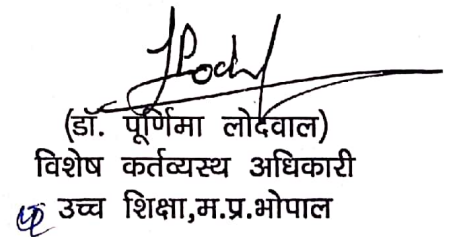 (डॉ. पूर्णिमा लोदवाल)
विशेष कर्तव्यस्थ अधिकारी
उच्च शिक्षा,म.प्र.भोपाल